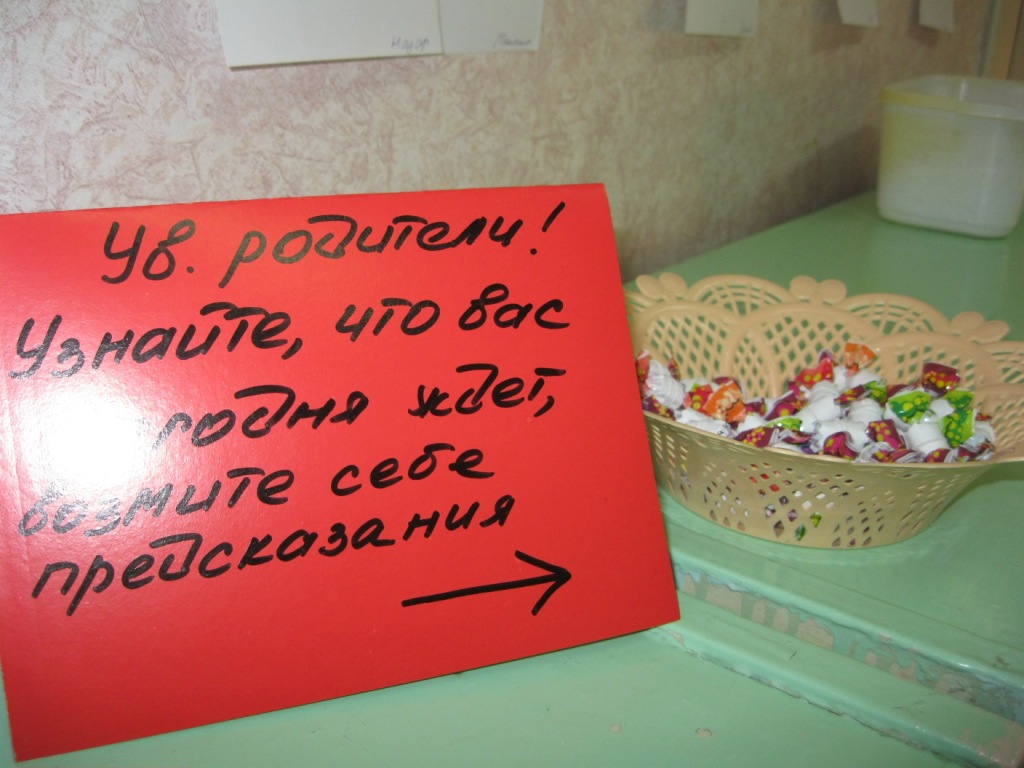 Ув. родители!
Узнайте, что вас
ждет,
возмите себе
предсказания